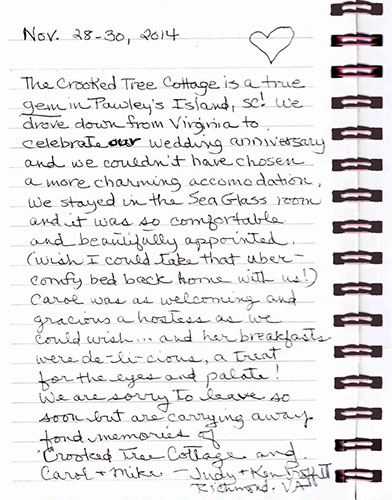 Nov. 28-30, 2014
The Crooked Tree Cottage is a true
gem in Pawley's Island, SC! We
drove down from Virginia to
celebrate our wedding anniversary
and we couldn't have chosen
a more charming accomodation.
We stayed in the Sea Glass room
and it was so comfortable
and beautifully appointed.
(wish I could take that uber-
comfy bed back home with us!)
Carol was as welcoming and
gracious a hostess as we
could wish... and her breakfasts
were de-li-cious, a treat
for the eyes and palate!
We are sorry to leave so
soon but are carrying away
fond memories of
Crooked Tree Cottage and
Carol + Mike - Judy + Ken
Richmond, VA